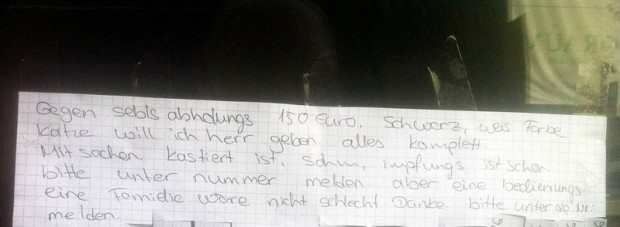 Gegen sebls abholungs 150 Euro. Schwarz, weis Farbe
Katze will ich herr geben alles komplett.
Mit sachen kastiert ist. schm, impfungs ist schon
bitte unter nummer melden. aber eine bedienungs
eine Familie wäre nicht schlecht Danke. bitte unter Nr:
melden.